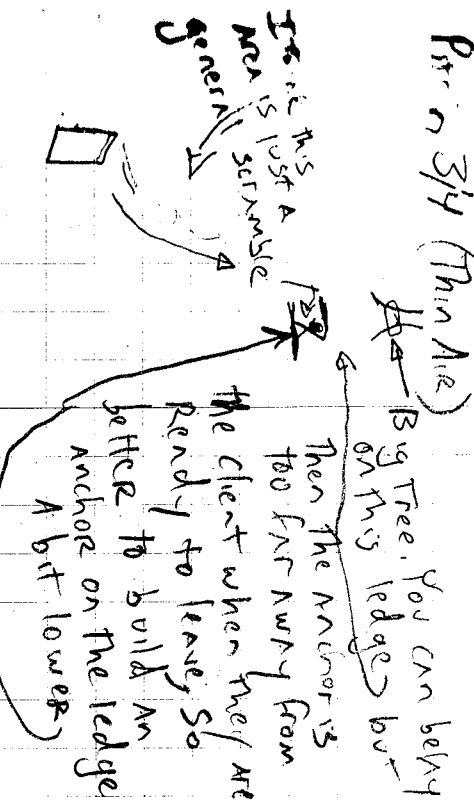 Pitch 3/4 (Thin Air)
Big Tree. You can belay
on this ledge but
Then the anchor is
too far away from
the client when they are
Ready to leave, so
better to build an
anchor on the ledge
A bit lower
this
Area is just a
general scramble